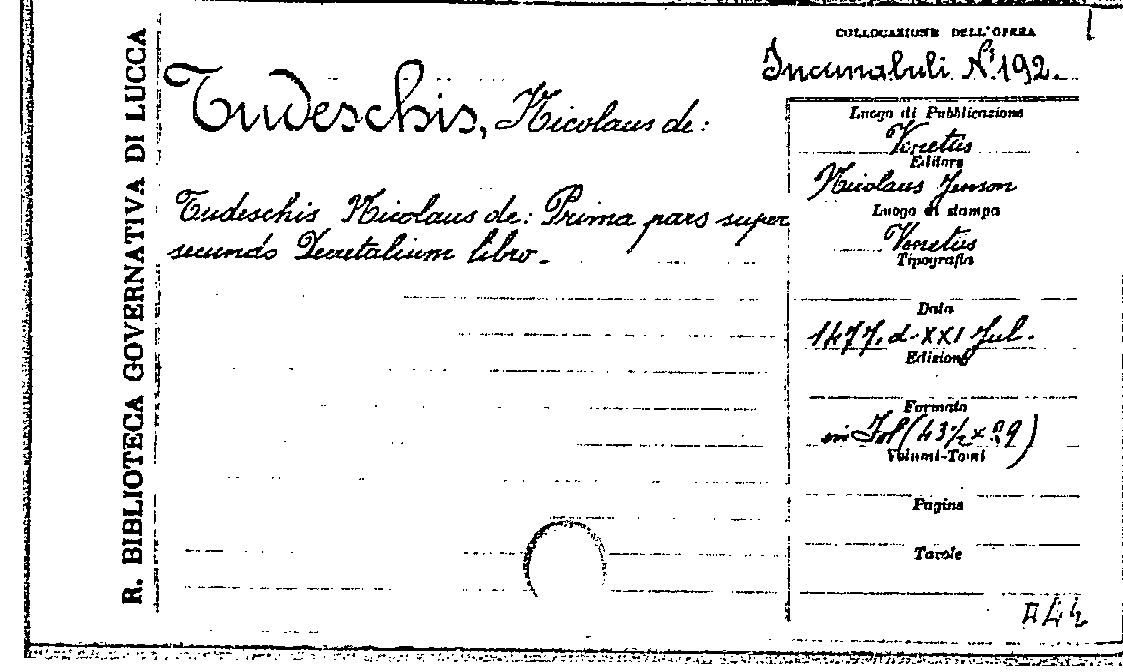 R. BIBLIOTECA GOVERNATIVA DI LUCCA
COLLOCAZIONE DELL'OPERA
Incunabuli Nº 192.
Tudeschis, Nicolaus de:
Tudeschis Nicolaus de: Prima pars super
secundo Decretalium libro.
Luogo di Pubblicazione
Venetiis
Editore
Nicolaus Jenson
Luogo di stampa
Venetiis
Tipografia
Data
1477. d. XXI Jul.
Edizione
Formato
in Fol (43½ x 29)
Volumi-Tomi
Pagine
Tavole